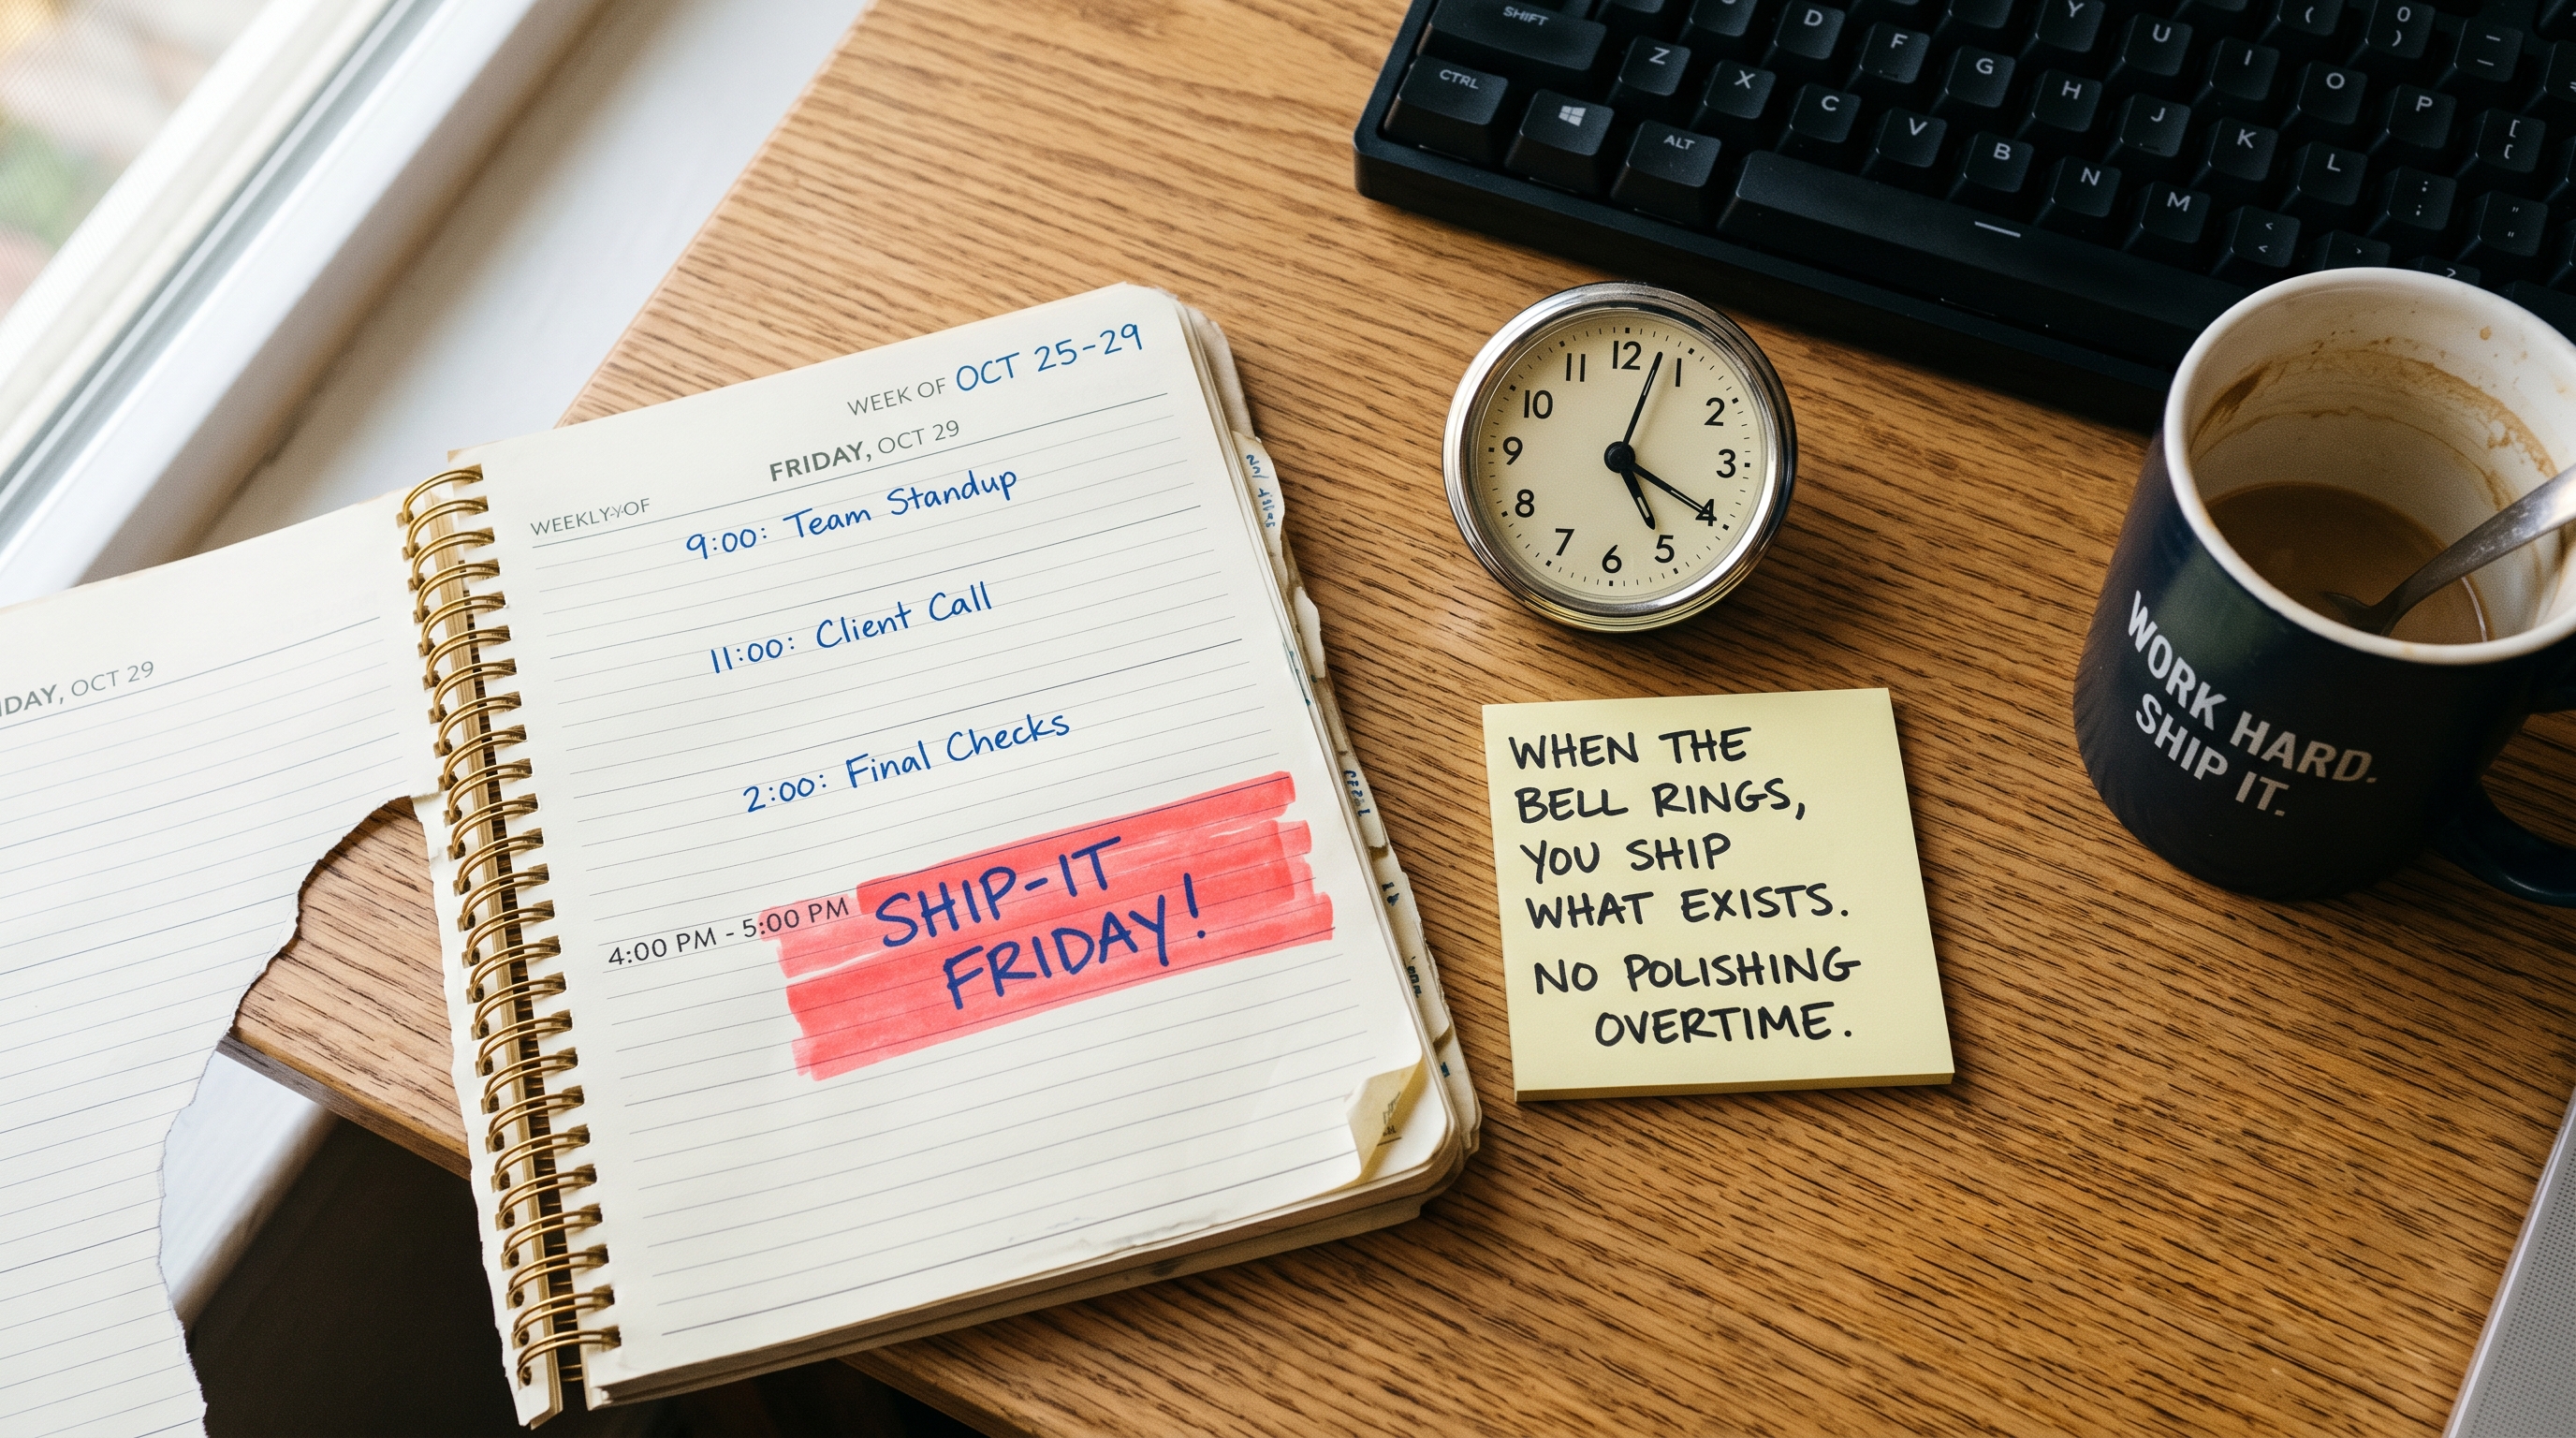 WEEK OF OCT 25-29
FRIDAY, OCT 29
9:00: Team Standup
11:00: Client Call
2:00: Final Checks
4:00 PM - 5:00 PM SHIP-IT
FRIDAY!
DAY, OCT 29
12
1
2
3
4
5
6
7
8
9
10
11
WHEN THE
BELL RINGS,
YOU SHIP
WHAT EXISTS.
NO POLISHING
OVERTIME.
WORK HARD.
SHIP IT.
0
)
D F Y U I O P [
SHIFT Z X C V G H J K L
CTRL ALT B N M